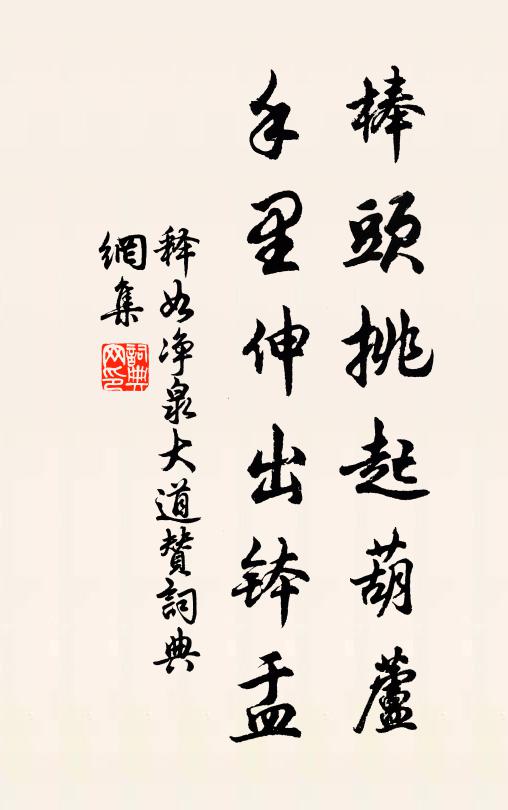 棒頭挑起葫蘆
手里伸出鉢盂
释如净泉大道赞詞典
網集
詞典
网印